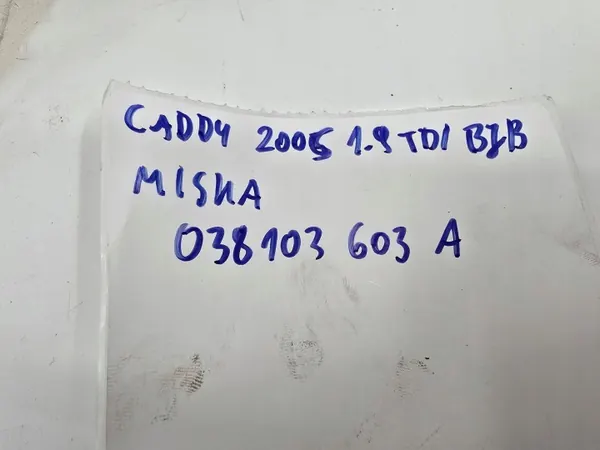 CADDY 2005 1.9 TDI BJB
MISKA
038103 603 A